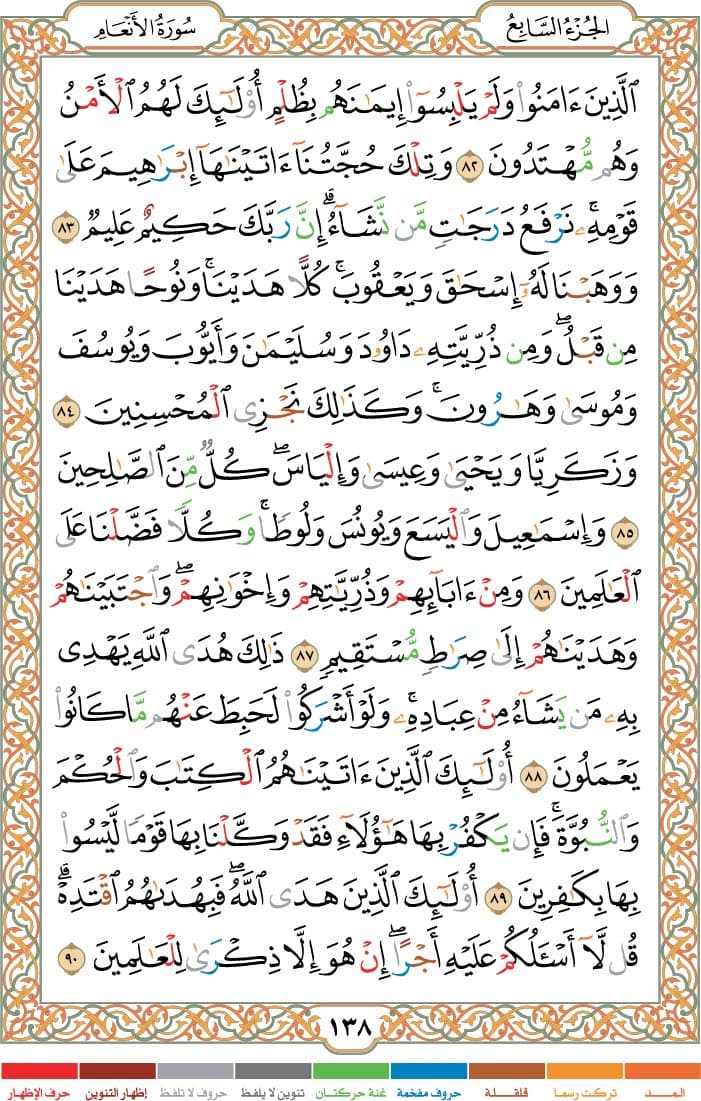 الجُزْءُ السَّابِعُ
سُورَةُ الأَنْعَامِ
الَّذِينَ ءَامَنُوا۟ وَلَمْ يَلْبِسُوٓا۟ إِيمَٰنَهُم بِظُلْمٍ أُو۟لَٰٓئِكَ لَهُمُ الْأَمْنُ
وَهُم مُّهْتَدُونَ ٨٢ وَتِلْكَ حُجَّتُنَآ ءَاتَيْنَٰهَآ إِبْرَٰهِيمَ عَلَىٰ
قَوْمِهِۦ ۚ نَرْفَعُ دَرَجَٰتٍ مَّن نَّشَآءُ ۗ إِنَّ رَبَّكَ حَكِيمٌ عَلِيمٌ ٨٣
وَوَهَبْنَا لَهُۥٓ إِسْحَٰقَ وَيَعْقُوبَ ۚ كُلًّا هَدَيْنَا ۚ وَنُوحًا هَدَيْنَا
مِن قَبْلُ ۖ وَمِن ذُرِّيَّتِهِۦ دَاوُۥدَ وَسُلَيْمَٰنَ وَأَيُّوبَ وَيُوسُفَ
وَمُوسَىٰ وَهَٰرُونَ ۚ وَكَذَٰلِكَ نَجْزِى الْمُحْسِنِينَ ٨٤
وَزَكَرِيَّا وَيَحْيَىٰ وَعِيسَىٰ وَإِلْيَاسَ ۖ كُلٌّ مِّنَ الصَّٰلِحِينَ
٨٥ وَإِسْمَٰعِيلَ وَالْيَسَعَ وَيُونُسَ وَلُوطًا ۚ وَكُلًّا فَضَّلْنَا عَلَى
الْعَٰلَمِينَ ٨٦ وَمِنْ ءَابَآئِهِمْ وَذُرِّيَّٰتِهِمْ وَإِخْوَٰنِهِمْ ۖ وَاجْتَبَيْنَٰهُمْ
وَهَدَيْنَٰهُمْ إِلَىٰ صِرَٰطٍ مُّسْتَقِيمٍ ٨٧ ذَٰلِكَ هُدَى اللَّهِ يَهْدِى
بِهِۦ مَن يَشَآءُ مِنْ عِبَادِهِۦ ۚ وَلَوْ أَشْرَكُوا۟ لَحَبِطَ عَنْهُم مَّا كَانُوا۟
يَعْمَلُونَ ٨٨ أُو۟لَٰٓئِكَ الَّذِينَ ءَاتَيْنَٰهُمُ الْكِتَٰبَ وَالْحُكْمَ
وَالنُّبُوَّةَ ۚ فَإِن يَكْفُرْ بِهَا هَٰٓؤُلَآءِ فَقَدْ وَكَّلْنَا بِهَا قَوْمًا لَّيْسُوا۟
بِهَا بِكَٰفِرِينَ ٨٩ أُو۟لَٰٓئِكَ الَّذِينَ هَدَى اللَّهُ ۖ فَبِهُدَىٰهُمُ اقْتَدِهْ ۗ
قُل لَّآ أَسْـَٔلُكُمْ عَلَيْهِ أَجْرًا ۖ إِنْ هُوَ إِلَّا ذِكْرَىٰ لِلْعَٰلَمِينَ ٩٠
١٣٨
المــــد
تركت رسما
قلقـــلة
حروف مفخمة
غنة حركتـان
تنوين لا يلفظ
حروف لا تلفظ
إظهار التنوين
حرف الإظهار